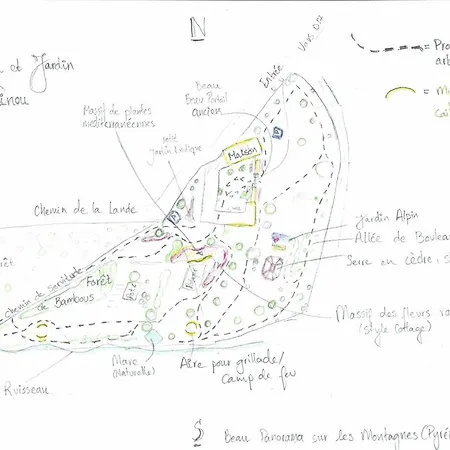 N
Vers D17
Entrée
et Jardin
inou
Beau
Beau Portail
ancien
= Pro
arb
Massif de plantes
méditerranéennes
petit
Jardin Exotique
P
Maison
Chemin de la Lande
P
Jardin Alpin
Allée de Boulea
Serre en cèdre
Forêt
de Bambous
Massif des fleurs va
(style Cottage)
Mare
(Naturelle)
Aire pour grillade/
Camp de feu
Ruisseau
S
Beau Panorama sur les Montagnes (Pyré